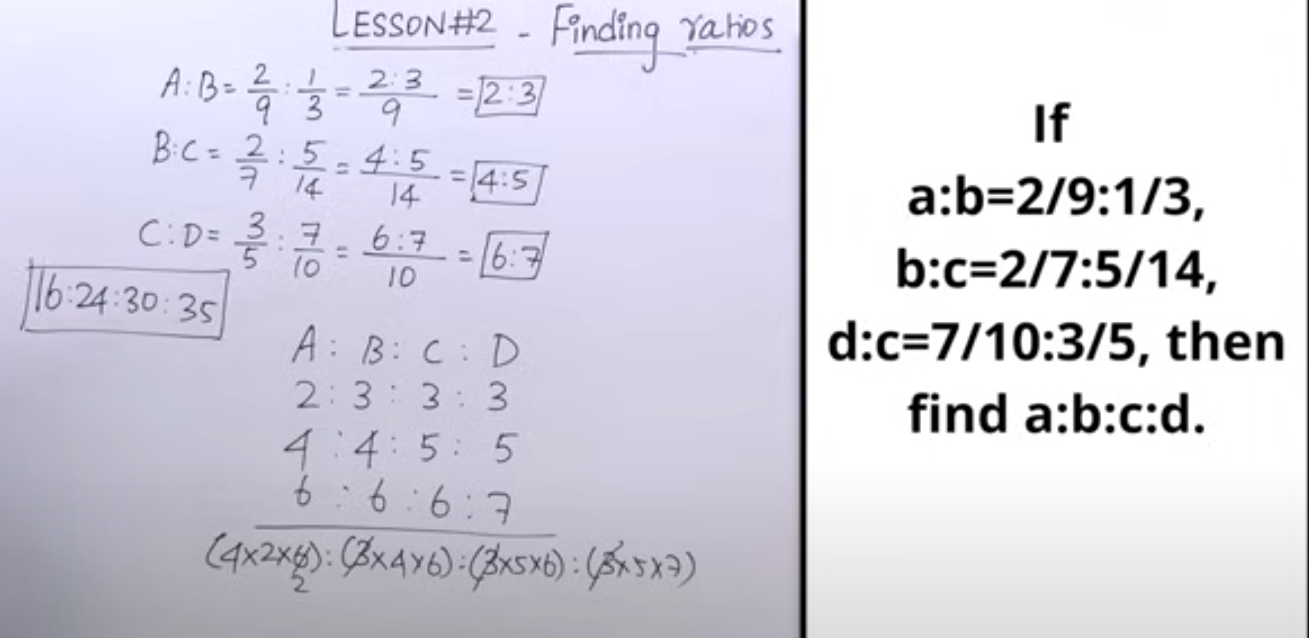 LESSON#2 - Finding ratios
A:B= 2/9 : 1/3 = 2:3/9 = 2:3
B:C= 2/7 : 5/14 = 4:5/14 = 4:5
C:D= 3/5 : 7/10 = 6:7/10 = 6:7
16:24:30:35
A : B : C : D
2 : 3 : 3 : 3
4 : 4 : 5 : 5
6 : 6 : 6 : 7
(4x2x6):(3x4x6):(3x5x6):(3x5x7)
2
If
a:b=2/9:1/3,
b:c=2/7:5/14,
d:c=7/10:3/5, then
find a:b:c:d.